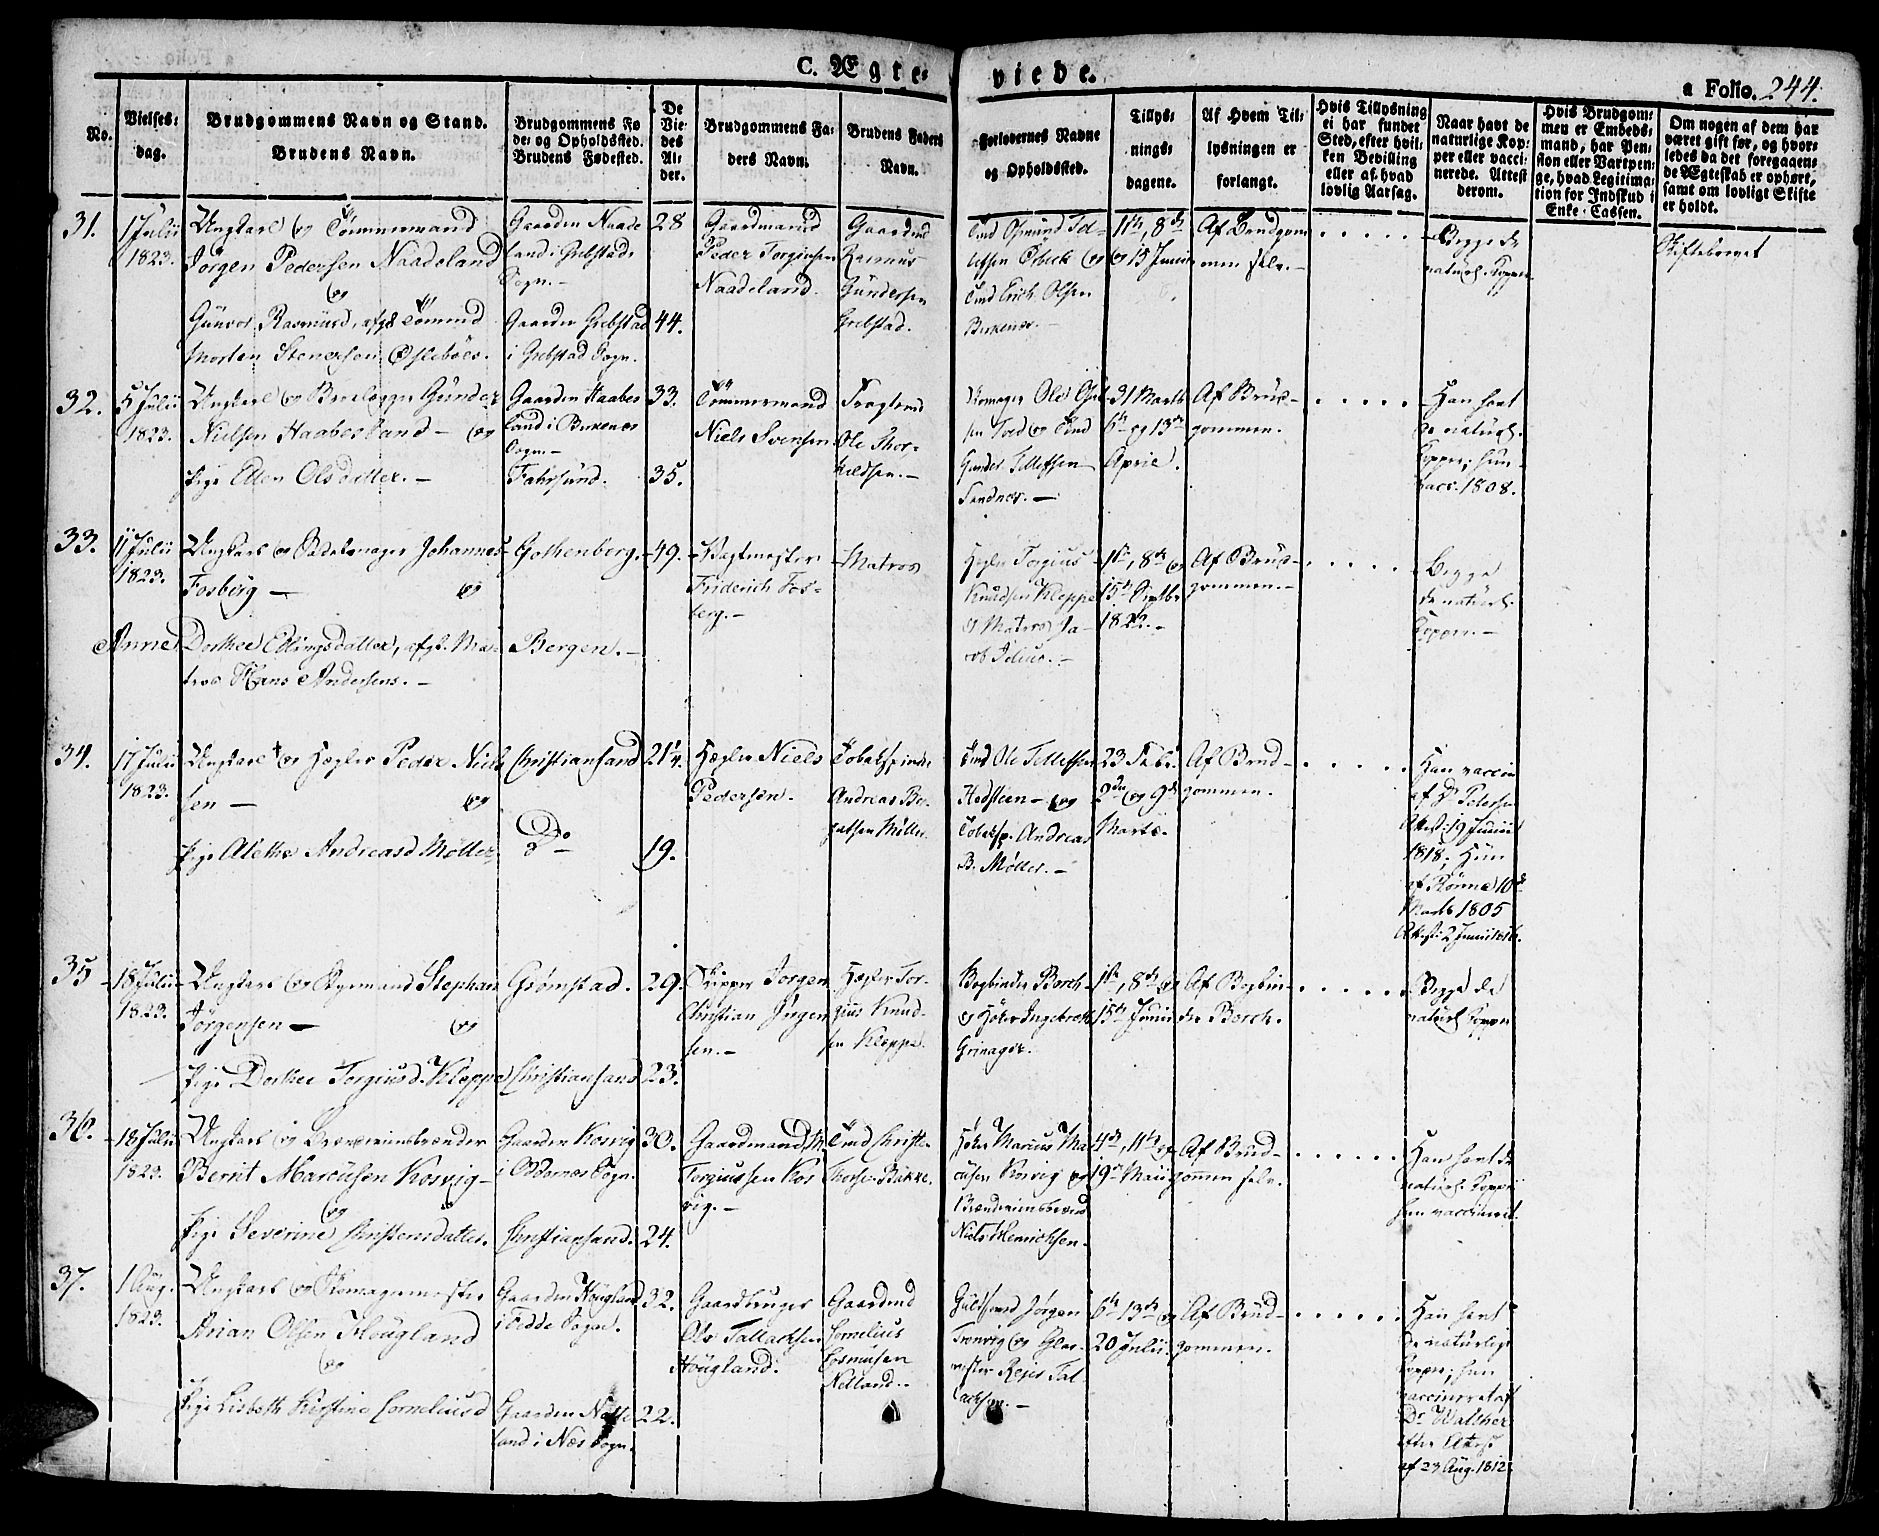 C. Ægte=
viede.
a Folio. 244.
No.
Vielses=
dag.
Brudgommens Navn og Stand.
Brudens Navn.
Brudgommens Fø
de= og Opholdssted.
Brudens Fødested.
De
Vie=
des
Al=
der.
Brudgommens Fa=
ders Navn.
Brudens Faders
Navn.
Forlovernes Navne
og Opholdssted.
Tillys=
nings=
dagene.
Af Hvem Til=
lysningen er
forlangt.
Hvis Tillysning
ei har fundet
Sted, efter hvil=
ken Bevilling
eller af hvad
lovlig Aarsag.
Naar havt de
naturlige Kop=
per eller vacci=
nerede. Attest
derom.
Hvis Brudgom=
men er Embeds=
mand, har Pen=
sion eller Vartpen=
ge, hvad Legitima=
tion for Indskud i
Enke=Cassen.
Om nogen af dem har
været gift før, og hvor=
ledes da det foregaaen=
de Ægteskab er ophørt,
samt om lovligt Skifte
er holdt.
31.
1 Julii
1823.
Ungkarl og Tømmermand
Jørgen Pedersen Naadeland
og
Gunvor Rasmusd, afg.
Morten Stenersen
Gaarden Naade
land i Grebstads
Sogn.
Gaarden Grebstad
i Grebstad Sogn.
28
44.
Gaardmand
Peder Torgiusen
Naadeland.
Gaardmd
Rasmus
Gundersen
Grebstad.
Erich Olsen
og 15 Junii
Af Brudgom
men selv.
Begge de
naturl. Kopper
Skiftebrevet
32.
5 Julii
1823.
Ungkarl og Gunder
Nielsen Haabesland og
Pige Ellen Olsdatter.
Gaarden Haabes
land i
Sogn.
Fahrsund.
33.
35.
Tømmermand
Niels Svensen
Ole Thor=
kildsen.
Ole
Gunder Tellefsen
31 Marts
6te og 13de
April.
Af Brud=
gommen.
Han havt
de naturl.
Kopper; hun
vacc. 1808.
33.
11 Julii
1823.
Ungkarl og Sadelmager Johannes
Fosberg
og
Anne Dorthea Ellingsdatter, afg. Ma=
tros Hans Andersens.
Gothenborg.
Bergen.
49.
Vagtmester
Friderich Fos=
berg.
Matros
Hegler Torgius
Knudsen Kleppe
og Matros Ja=
cob
1ste, 8de og
15de Septbr
1822.
Af Brud=
gommen.
Begge
de naturl.
Kopper.
34.
17 Julii
1823.
Ungkarl og Hegler Peder Niel
sen
og
Pige Alethe Andreasd Møller
Christiansand
Do
21¼.
19.
Hegler Niels
Pedersen.
Tobakspinder
Andreas
Møller.
Ole Tellefsen
Hodsteen og
Tobaksp. Andreas
B. Møller.
23 Febr.
2den og 9de
Marts.
Af Brud=
gommen.
Han vaccin
af Dr Petersen
Attest 19 Junii
1818; Hun
af Rønne 10de
Marts 1805
Attest 2 Junii 1816.
35
18 Julii
1823.
Ungkarl og Styrmand Stephan
Jørgensen
og
Pige Dorthea Torgiusd. Kleppe
Grømstad.
Christiansand
29.
23.
Skipper Jørgen
Christian Jørgen
sen.
Hegler Tor=
gius Knud=
sen Kleppe.
Bogbinder Borch
og Høker Ingebreth
Grinager.
1ste, 8de og
15de Junii
Af Bogbin=
der Borch.
Begge de
naturl Kopper
36.
18 Julii
1823.
Ungkarl og Brændeviinsbrænder
Bernt Marcusen Kosvig
og
Pige Severine Christensdatter.
Gaarden Kosvig
i Oddernes Sogn.
Christiansand.
30.
24.
Gaardmand M.
Torgiussen Kos
vig.
Christen
Thorsen Bakke.
Høker Marcus Mar=
cusen Kosvig og
Niels Henrichsen.
4de, 11te og
19de Maii
Af Brud=
gommen selv.
Han havt de
naturl. Kopper
hun vaccineret.
37.
1 Aug.
1823.
Ungkarl og Skomagermester
Arian Olsen Høugland
og
Pige Lisbeth Kirstine Corneliusd
Gaarden Høugland
i Fedde Sogn.
Gaarden
land i Næs Sogn.
32.
22.
Gaardbruger
Ole Tallaksen
Høugland.
Gaardmd
Cornelius
Rosmusen
Netland.
Guldsmed Jørgen
Tronvig og Glar=
mester Reier Tal
lachsen.
6te 13de og
20 Julii.
Af Brud=
gommen.
Han havt
de naturlige
Kopper; hun
vaccineret af
Dr Walther
efter Attest
af 23 Aug. 1812.